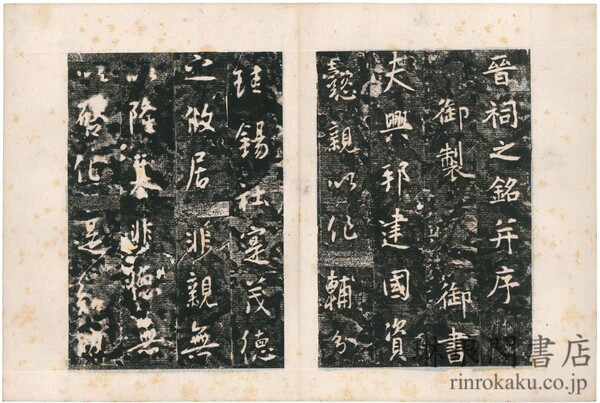 晉祠之銘并序
御製 御書
夫興邦建國資
懿親以作輔分
珪錫社寔茂德
之攸居非親無
以隆基非德無
以啓化是知
書店
rinrokaku.co.jp